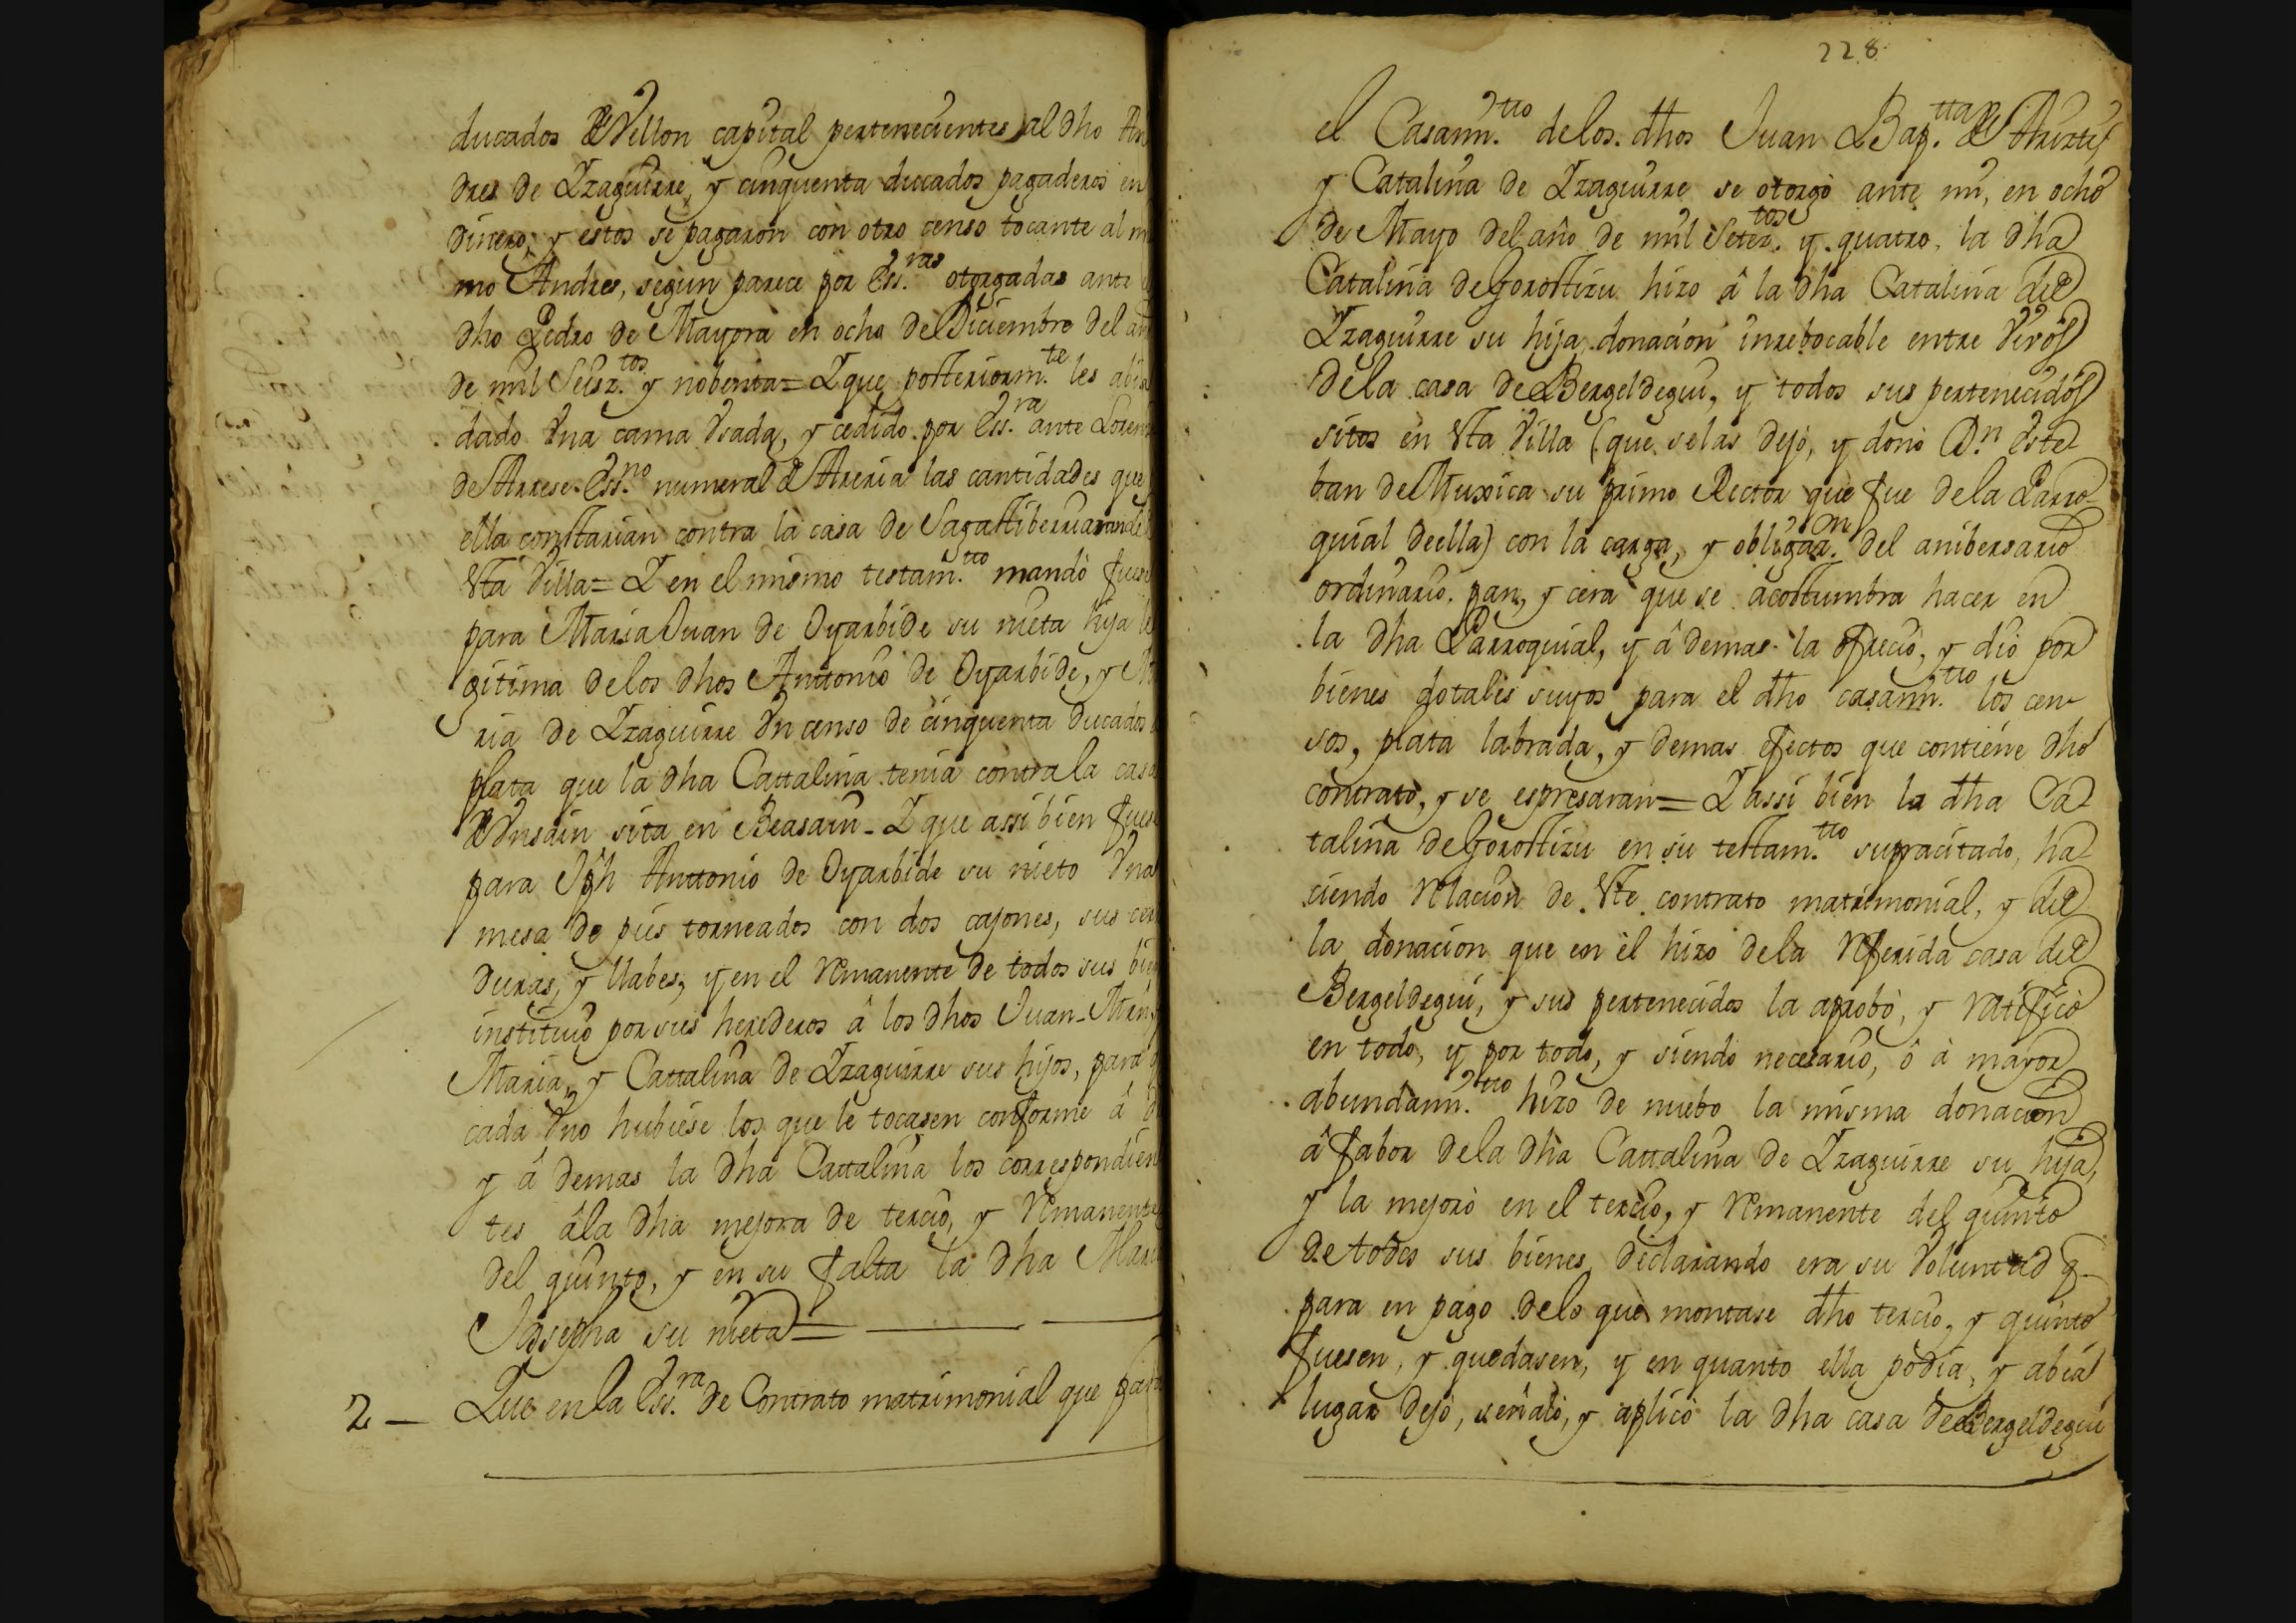 ducados de Vellon capital pertenecientes al dho An
dres de Yzaguirre, y cinquenta ducados pagaderos en
dinero; y estos se pagaron con otro censo tocante al mi
mo Andres, segun parece por Ess.ras otorgadas ante
dho Pedro de Mayora en ocho de Diciembre del añ
de mil Seisz.tos y nobenta = Y que posteriorm.te les abia
dado Vna cama Vsada, y cedido por Ess.ra ante Loren
de Arrese Ess.no numeral de Areria las cantidades que
ella constarian contra la casa de Sagastiberria
esta Villa = Y en el mismo testam.tto mandò fuese
para Maria Juan de Oyarbide su nieta hija le
gitima delos dhos Anttonio de Oyarbide, y Ma
ria de Yzaguirre Vn censo de cinquenta ducados
plata que la dha Cattalina tenia contra la casa
de Vnsain sita en Beasain - Y que assi bien fuese
para Jph Anttonio de Oyarbide su nieto Vna
mesa de pies torneados con dos cajones, sus cer
duras, y llabes, y en el remanente de todos sus bie
instituiò por sus herederos â los dhos Juan - Mrn,
Maria, y Cattalina de Yzaguirre sus hijos, para
cada Vno hubiese los que le tocasen conforme â
y â demas la dha Cattalina los correspondien
tes âla dha mejora de tercio, y remanente
del quinto, y en su falta la dha Maria
Josepha su nieta =
2 - Que en la Ess.ra de Contrato matrimonial que para
228
el Casam.tto delos dhos Juan Bap.tta de Ariztti,
y Catalina de Yzaguirre se otorgò ante mi, en ocho
de Mayo del año de mil Setez.tos y quatro, la dha
Catalina de Gorostizu hizo â la dha Catalina de
Yzaguirre su hija donacion inrebocable entre Vivos
dela casa de Bergeldegui, y todos sus pertenecidos
sitos en esta Villa (que selas dejò, y donò D.n Este
ban de Muxica su primo Rector que fue dela Parro
quial deella) con la carga, y obligaz.on del anibersario
ordinario, pan, y cera que se acostumbra hacer en
la dha Parroquial, y â demas la ofreciò, y diò por
bienes dotales suyos para el dho casam.tto los cen
sos, plata labrada, y demas efectos que contiene dho
contrato, y se espresaran = Y assi bien la dha Ca
talina de Gorostizu en su testam.tto supracitado, ha
ciendo relacion de este contrato matrimonial, y de
la donacion que en èl hizo dela referida casa de
Bergeldegui, y sus pertenecidos la aprobò, y ratificò
en todo, y por todo, y siendo necesario, ô à mayor
abundam.tto hizo de nuebo la misma donacion
â fabor dela dha Cattalina de Yzaguirre su hija,
y la mejorò en el tercio, y remanente del quinto
de todos sus bienes, declarando era su Voluntad q.
para en pago delo que montase dho tercio, y quinto
fuesen, y quedasen, y en quanto ella podia, y abia
lugar dejò, señalò, y aplicò la dha casa de Bergeldegui